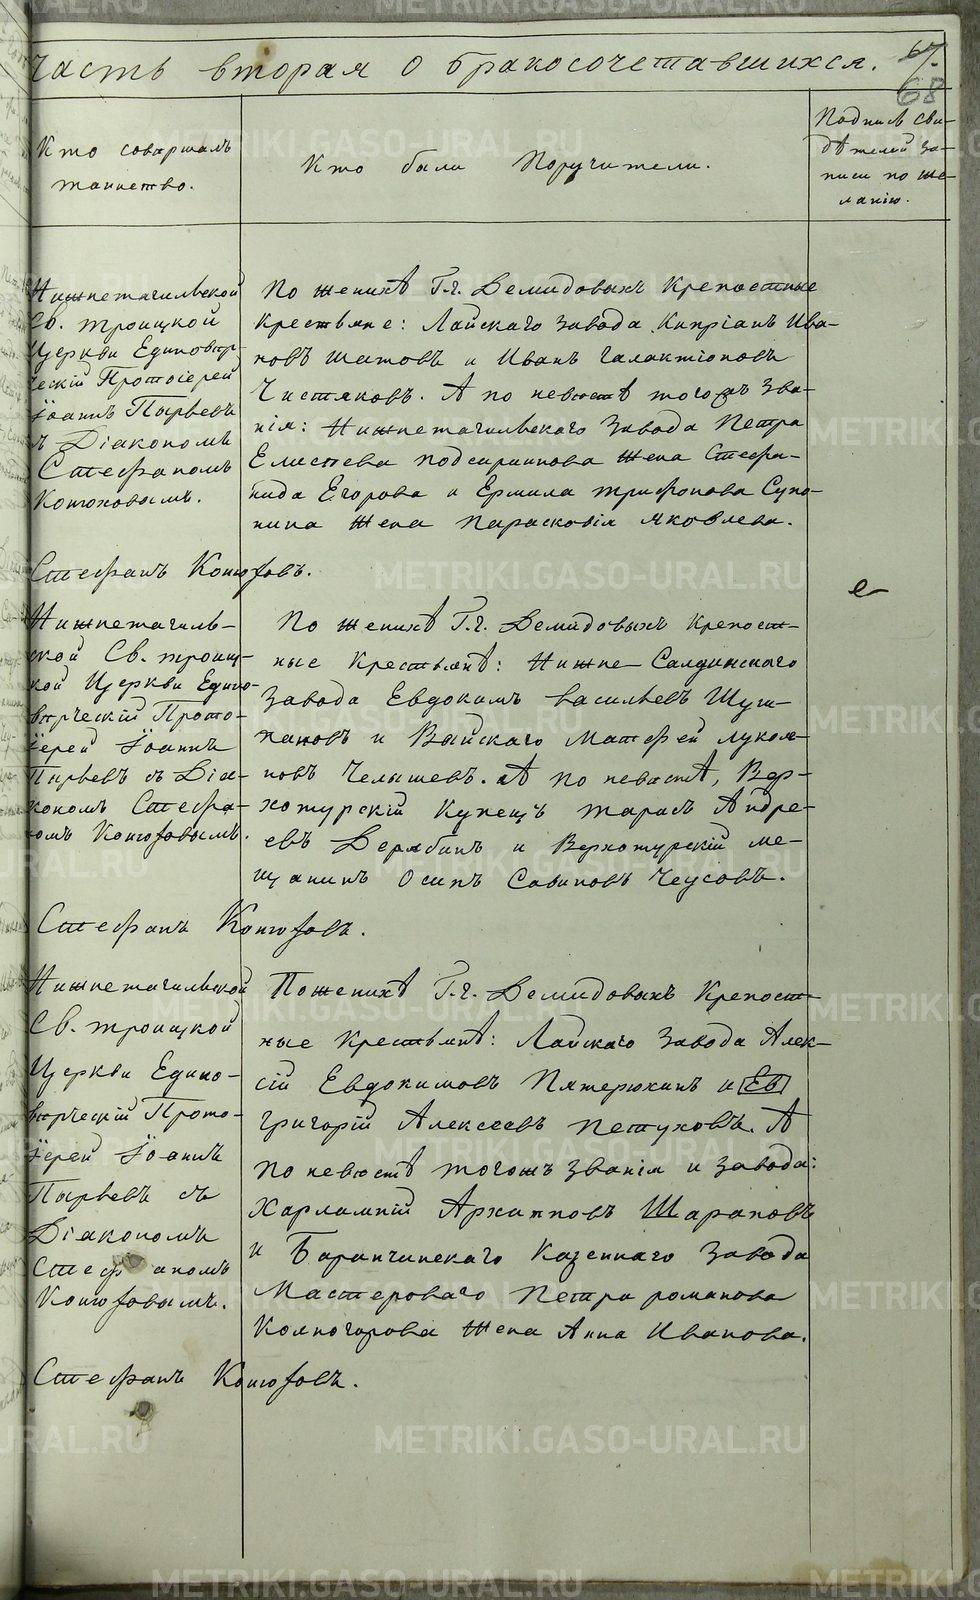 Часть вторая о бракосочетавшихся.
67.
68
Кто совершалъ
таинство.
Кто были Поручители.
Подпись сви-
дѣтелей за-
писи по же-
ланію.
Нижнетагильской
Св. Троицкой
Церкви Единовѣр-
ческій Протоіерей
Іоаннъ Пырьевъ
съ Діакономъ
Стефаномъ
Конюховымъ.
По женихѣ Г.г. Демидовыхъ Крепостные
Крестьяне: Лайскаго завода Кипріанъ Ива-
новъ Шатовъ и Иванъ Галактіоновъ
Чистяковъ. А по невѣстѣ тогожъ зва-
нія: Нижнетагильскаго Завода Петра
Елисѣева Подсиринова Жена Стефа-
нида Егорова и Ермила Трифонова Супо-
нина Жена Парасковія Яковлева.
Стефанъ Конюховъ.
Нижнетагиль-
ской Св. Троиц-
кой Церкви Едино-
вѣрческій Прото-
іерей Іоаннъ
Пырьевъ съ Діа-
кономъ Стефа-
номъ Конюховымъ.
По женихѣ Г.г. Демидовыхъ Крепост-
ные Крестьянѣ: Нижне-Салдинскаго
завода Евдокимъ Васильевъ Шуш-
хановъ и Выйскаго Матфей Лукоя-
новъ Челышевъ. А по невѣстѣ, Вер-
хотурскій Купецъ Тарасъ Андре-
евъ Дерябинъ и Верхотурскій ме-
щанинъ Осипъ Савиновъ Чеусовъ.
Стефанъ Конюховъ.
Нижнетагильской
Св. Троицкой
Церкви Едино-
вѣрческій Прото-
іерей Іоаннъ
Пырьевъ съ
Діакономъ
Стефаномъ
Конюховымъ.
По женихѣ Г.г. Демидовыхъ Крепост-
ные Крестьянѣ: Лайскаго Завода Алек-
сій Евдокимовъ Пятерюхинъ и Ев
григорій Алексеевъ Петуховъ. А
по невѣстѣ тогожъ званія и завода:
Харлампій Архиповъ Шараповъ
и Баранчинскаго Казеннаго Завода
Мастероваго Петра Романова
Колногорова Жена Анна Иванова.
Стефанъ Конюховъ.
METRIKI.GASO-URAL.RU